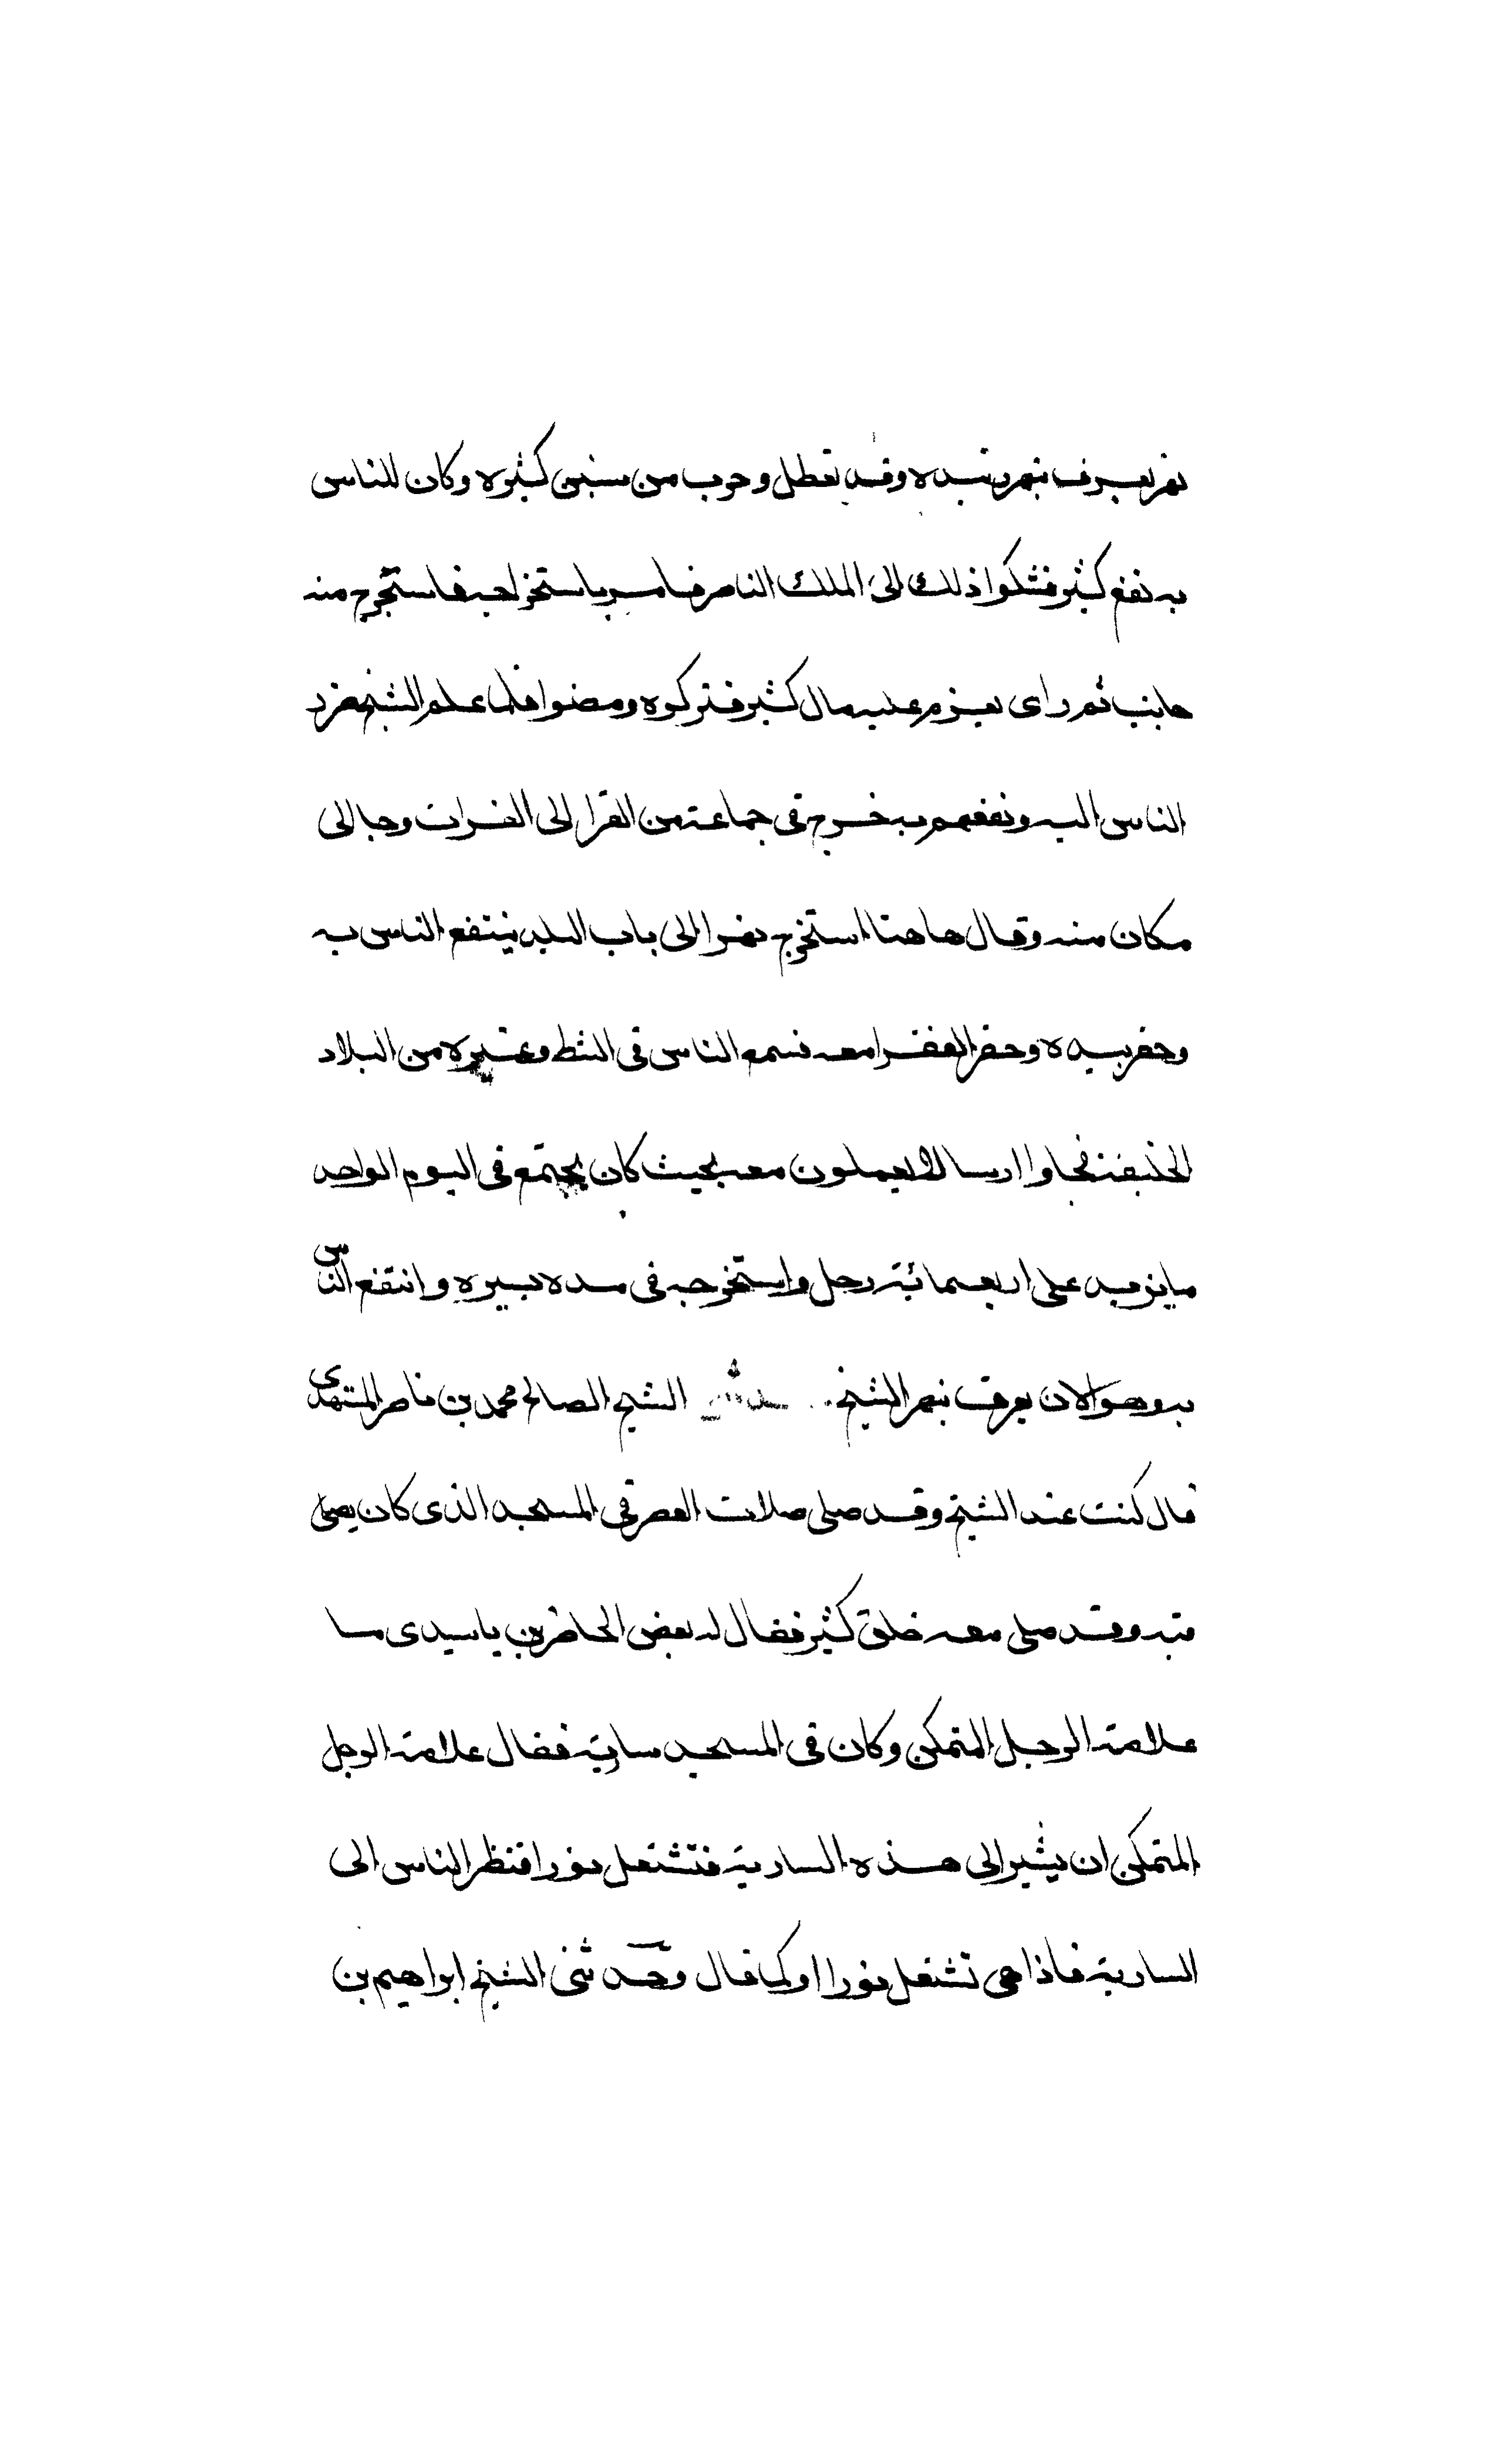 نهر يعرف بنهر زبيده وقد تعطل وخرب من سنين كثيره وكان للناس
به نفع كثير فشكوا ذلك الى الملك الناصر فامر باستخراجه فاستخرج منه
جانب ثم راى يعزم عليه مال كثير فتركوه ومضوا فلما علم الشيخ ضرر
الناس اليه ونفعهم به خرج في جماعة من الفقرا الى الفرات وجا الى
مكان منه وقال هاهنا استخرج نهرا الى باب البلد ينتفع الناس به
وحفر بيده وحفر الفقرا معه فسمع الناس في الشط وغيره من البلاد
الخليفة فجاوا ارسالا يعملون معه بحيث كان يجتمع في اليوم الواحد
ما يزيد على اربعمائة رجل واستخرجه في مده يسيره وانتفع الناس
به وهو الان يعرف بنهر الشيخ الشيخ الصالح محمد بن ناصر المشهدى
قال كنت عند الشيخ وقد صلى صلات العصر في المسجد الذى كان يصلى
فيه وقد صلى معه خلق كثير فقال له بعض الحاضرين ياسيدى ما
علامة الرجل المتمكن وكان في المسجد سارية فقال علامة الرجل
المتمكن ان يشير الى هذه السارية فتشتعل نورا فنظر الناس الى
السارية فاذا هي تشتعل نورا او كما قال وحدثنى الشيخ ابراهيم بن